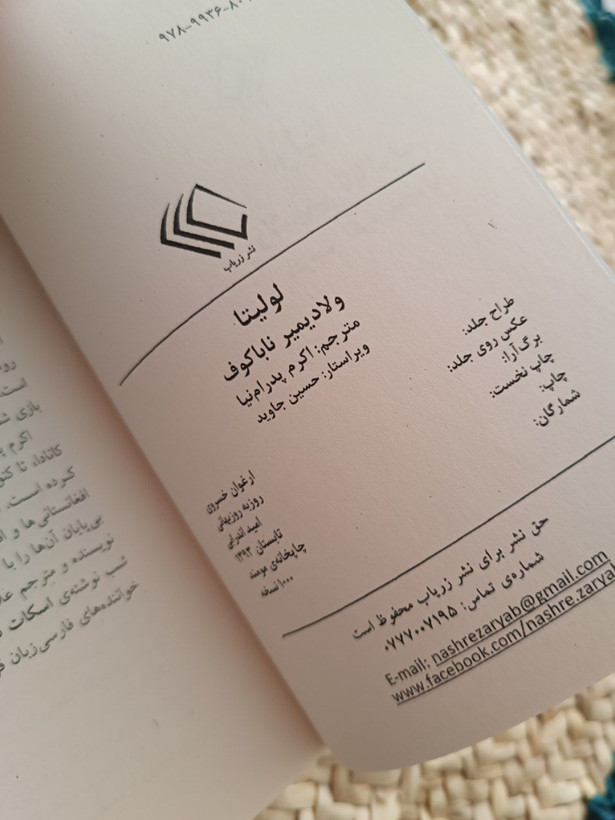 ۹۷۸-۹۹۳۶-۸۰
نشر زریاب
لولیتا
ولادیمیر ناباکوف
مترجم: اکرم پدرام‌نیا
ویراستار: حسین جاوید
طراح جلد: ارغوان خسروی
عکس روی جلد: روزبه روزبهانی
برگ‌آرا: امید اندرابی
چاپ نخست: تابستان ۱۳۹۳
چاپ: چاپخانه‌ی مومند
شمارگان: ۱۰۰۰ نسخه
حق نشر برای نشر زریاب محفوظ است
شماره‌ی تماس: ۰۷۷۷۰۰۷۱۹۵
E-mail: nashrezaryab@gmail.com
www.facebook.com/nashre.zaryab
است.
بازی
اکرم
کانادا، تا
کرده است.
افغانستانی‌ها و
بی‌پایان آن‌ها را با
نویسنده و مترجم
شب نوشته‌ی اسکات
خواننده‌های فارسی‌زبان